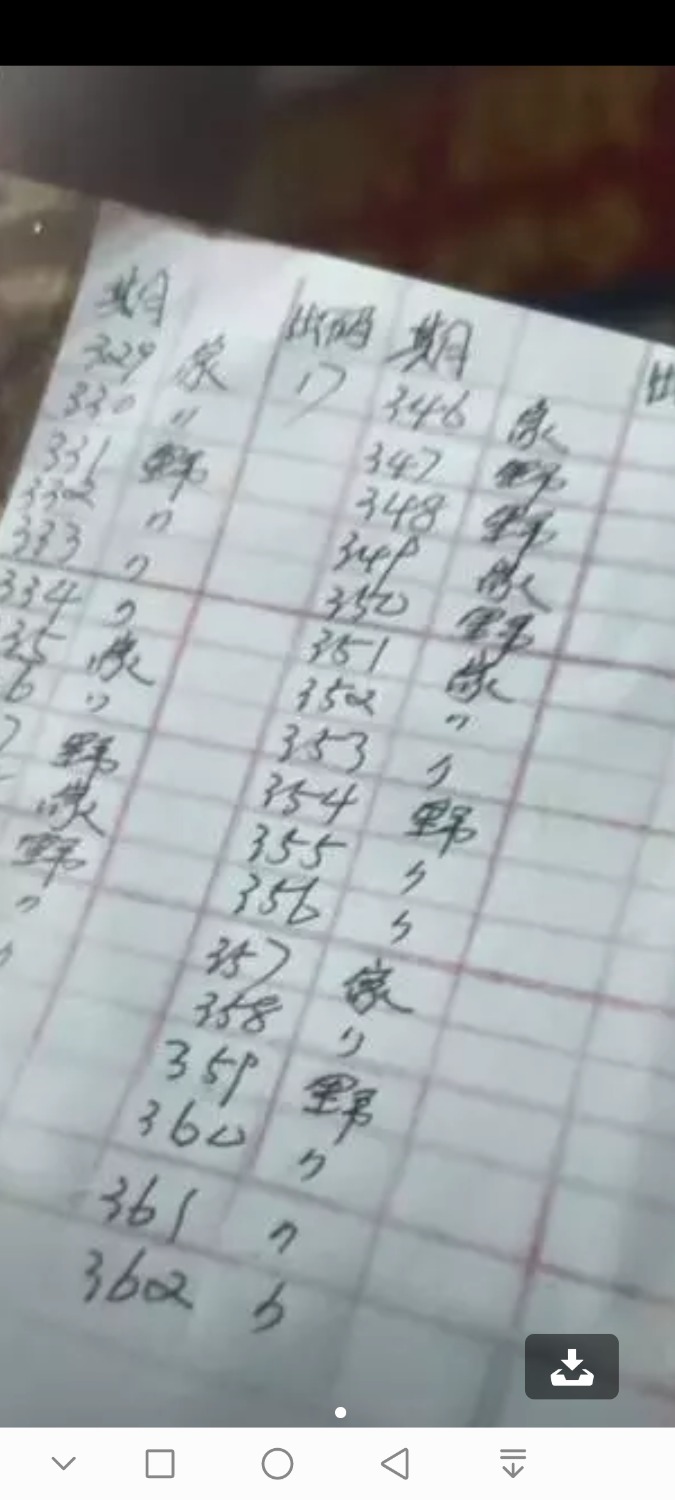 期 出码 期 出
329 家 17 346 家
330 〃 347 野
331 野 348 野
332 〃 349 家
333 〃 350 野
334 〃 351 家
35 家 352 〃
6 〃 353 〃
7 野 354 野
家 355 〃
野 356 〃
〃 357 家
〃 358 〃
359 野
360 〃
361 〃
362 〃